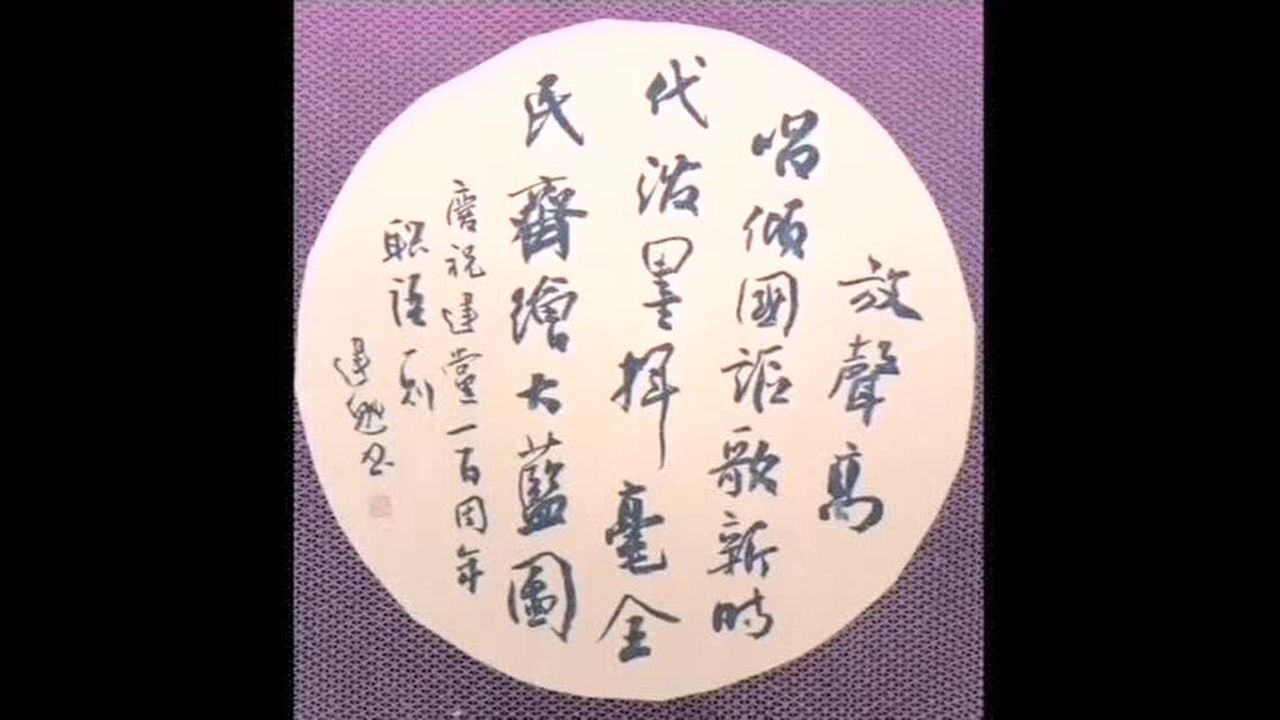 放聲高
唱傾國謳歌新時
代潑墨揮毫全
民齊繪大藍圖
慶祝建黨一百周年
聯語一則
建勉书